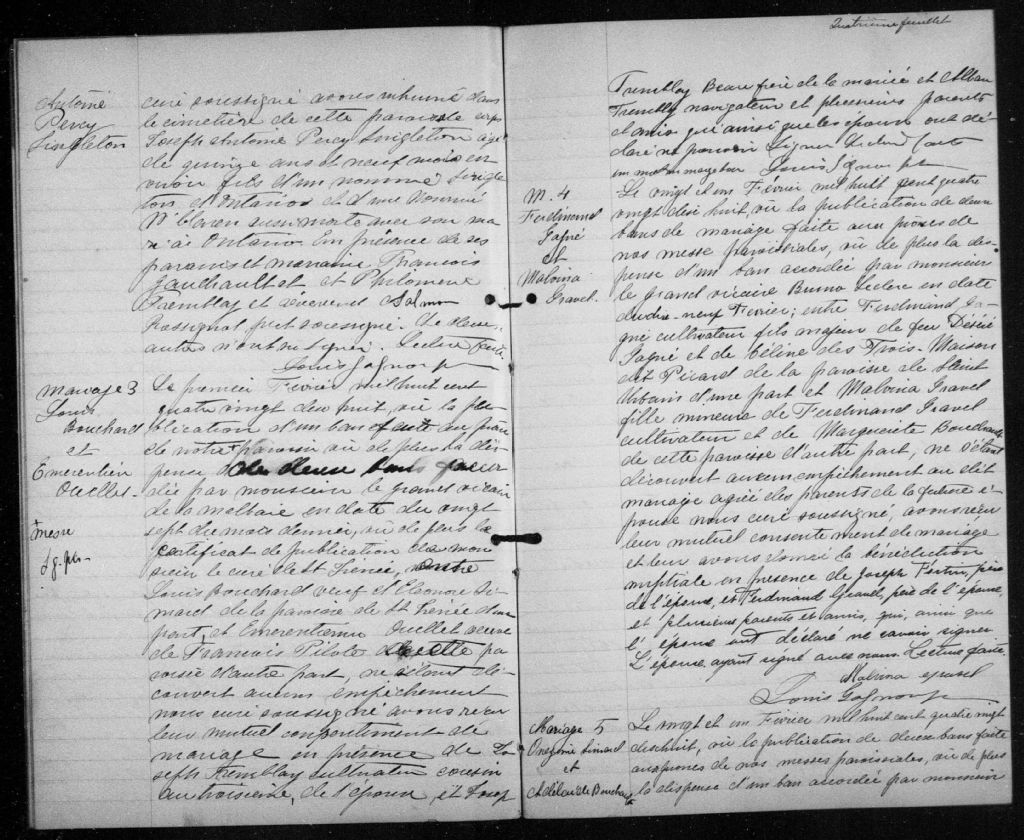 Antoine
Percy
Singleton
curé soussigné avons inhumé dans
le cimetière de cette paroisse le corps
Joseph Antoine Percy Singleton agé
de quinze ans et neuf mois en
viron fils d'un nommé Single
ton d'Ontario et d'une nommé
à Ontario En présence de ses
parrains et marraine François
Gaudreault et Philomène
Tremblay et révérend Salmon
Rossignol ptre soussigné. Les deux
autres n'ont su signer. Lecture faite
Louis Gagnon ptr
mariage 3
Louis
Bouchard
et
Emerentien
Ouellet
Le premier Février mil huit cent
quatre vingt dix huit, vû la pu
blication d'un ban faite au prône
de notre paroisse vû de plus la dis
pense de deux bans accor
dée par monsieur le grand vicaire
de la malbaie en date du vingt
sept du mois dernier, vû de plus le
certificat de publication de mon
sieur le curé de St Irenée, entre
Louis Bouchard veuf d'Eleonore Si
mard de la paroisse de St Irenée d'une
part, et Emerentienne Ouellet veuve
de François Pilote de cette pa
roisse d'autre part, ne s'étant dé
couvert aucun empêchement
nous curé soussigné avons reçu
leur mutuel consentement de
mariage en présence de Jo
seph Tremblay cultivateur cousin
au troisième, de l'époux, et Josep
Quatrième feuillet
Tremblay Beau frère de la mariée et Alban
Tremblay navigateur et plusieurs parents
et amis qui ainsi que les époux ont dé
claré ne pouvoir signer Lecture faite
un mot en marge bon Louis Gagnon ptr
M. 4
Ferdinand
Gagné
et
Malvina
Gravel.
Le vingt et un Février mil huit cent quatre
vingt dix huit, vû la publication de deux
bans de mariage faite aux prônes de
nos messe paroissiales, vû de plus la dis-
pense d'un ban accordée par monsieur
le grand vicaire Bruno Leclerc en date
du dix-neuf Février; entre Ferdinand Ga-
gné cultivateur fils majeur de feu Désiré
Gagné et de Céline des Trois-Maison
dit Picard de la paroisse de Saint
Urbain d'une part et Malvina Gravel
fille mineure de Ferdinand Gravel
cultivateur et de Marguerite Boudreault
de cette paroisse d'autre part, ne s'étant
découvert aucun empêchement au dit
mariage agréé des parents de la future é-
pouse nous curé soussigné, avons reçu
leur mutuel consentement de mariage
et leur avons donné la bénédiction
nuptiale en présence de Joseph Fortin, père
de l'époux, et Ferdinand Gravel, père de l'épouse,
et plusieurs parents et amis, qui, ainsi que
l'époux ont déclaré ne savoir signer
L'épouse ayant signé avec nous. Lecture faite.
Malvina Gravel
Louis Gagnon ptr
Mariage 5
Onezime Simard
et
Adélaïde Bouchard
Le vingt et un Février mil huit cent quatre vingt
dix huit, vû la publication de deux bans faite
aux prônes de nos messes paroissiales, vû de plus
la dispense d'un ban accordée par monsieur